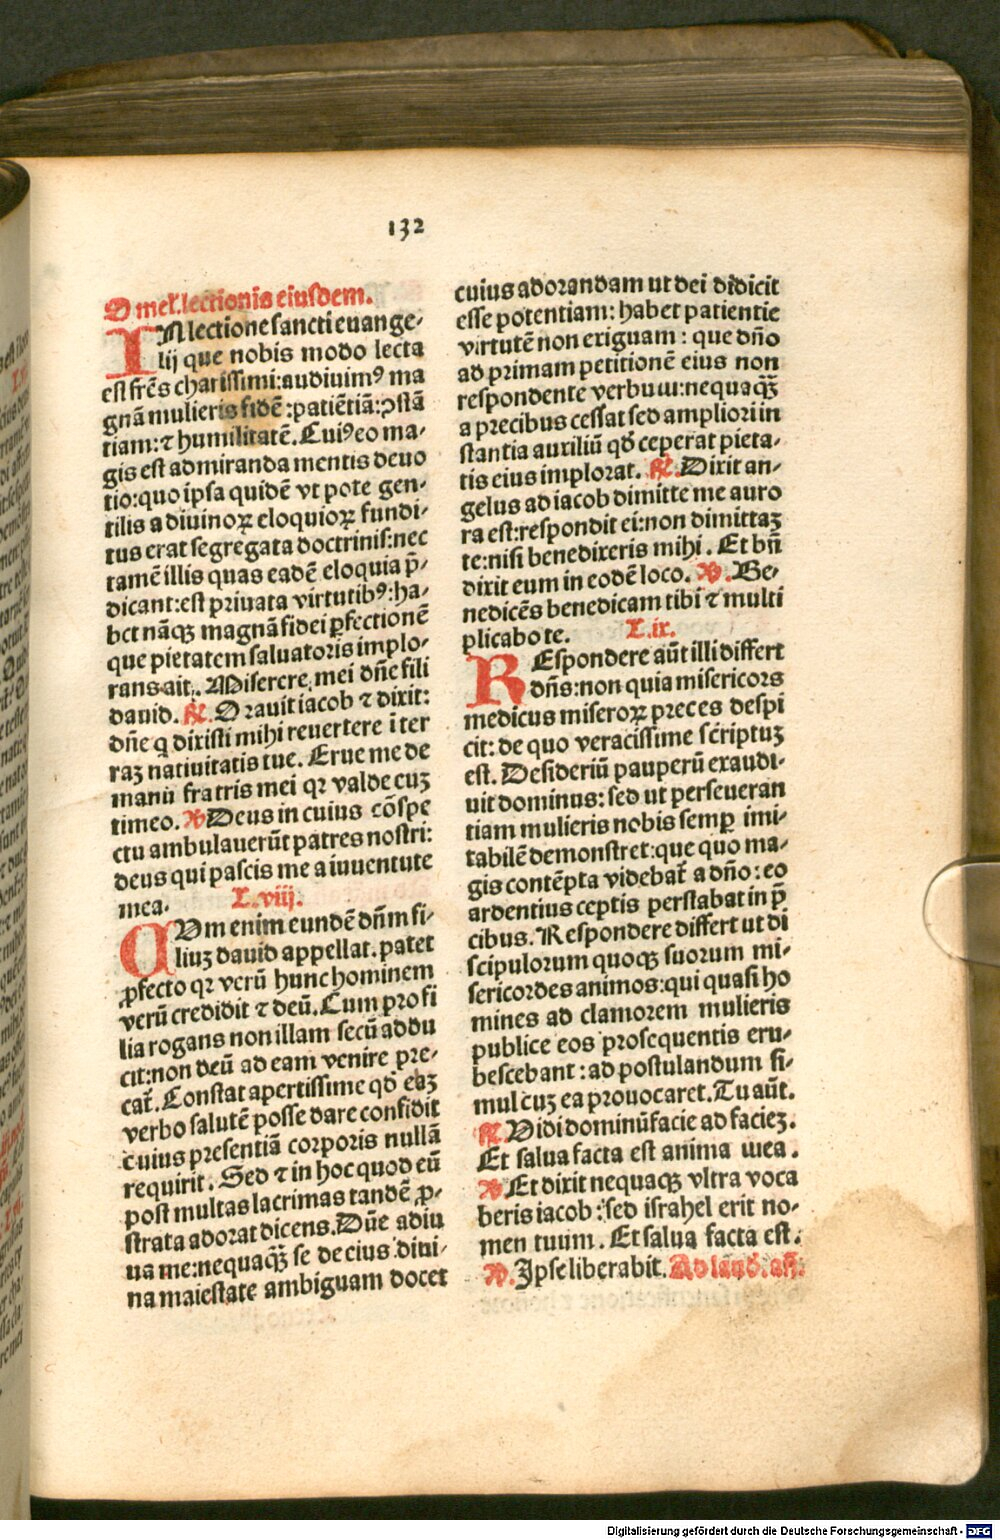 132
Omel'. lectionis eiusdem.
IN lectione sancti euange-
lij que nobis modo lecta
est frēs charissimi: audiuimꝰ ma
gnā mulieris fidē: patiētiā: ꝯstā
tiam: ⁊ humilitatē. Cuiꝰ eo ma-
gis est admiranda mentis deuo
tio: quo ipsa quidē vt pote gen-
tilis a diuinoꝝ eloquioꝝ fundi-
tus erat segregata doctrinis: nec
tamē illis quas eadē eloquia p̄-
dicant: est priuata virtutibꝰ: ha-
bet nāqꝫ magnā fidei ꝑfectionē
que pietatem saluatoris implo-
rans ait. Miserere mei dñe fili
dauid. ℟. Orauit iacob ⁊ dixit:
dñe q̇ dixisti mihi reuertere ī ter
raꝫ natiuitatis tue. Erue me de
manū fratris mei qꝛ valde cuꝫ
timeo. ℣ Deus in cuius cōspe
ctu ambulauerūt patres nostri:
deus qui pascis me a iuuentute
mea. L. viij.
CVm enim eundē dn̄m fi-
liuꝫ dauid appellat. patet
ꝓfecto qꝛ verū hunc hominem
verū credidit ⁊ deū. Cum pro fi
lia rogans non illam secū addu
cit: non deū ad eam venire pre-
cat̄. Constat apertissime qđ eaꝫ
verbo salutē posse dare confidit
cuius presentiā corporis nullā
requirit. Sed ⁊ in hoc quod eū
post multas lacrimas tandē ꝓ-
strata adorat dicens. Dñe adiu
ua me: nequaqꝫ̄ se de eius diui-
na maiestate ambiguam docet
cuius adorandam ut dei didicit
esse potentiam: habet patientie
virtutē non exiguam: que dño
ad primam petitionē eius non
respondente verbuɯ: nequaqꝫ̄
a precibus cessat sed ampliori in
stantia auxiliū qđ ceperat pieta-
tis eius implorat. ℟. Dixit an-
gelus ad iacob dimitte me auro
ra est: respondit ei: non dimittaꝫ
te: nisi benedixeris mihi. Et bn̄
dixit eum in eodē loco. ℣. Be-
nedicēs benedicam tibi ⁊ multi
plicabo te. L. ix.
REspondere aūt illi differt
dn̄s: non quia misericors
medicus miseroꝝ preces despi
cit: de quo veracissime scriptuꝫ
est. Desideriū pauperū exaudi-
uit dominus: sed ut perseueran
tiam mulieris nobis semꝑ imi-
tabilē demonstret: que quo ma-
gis contēpta videbat̄ a dño: eo
ardentius ceptis perstabat in p̄
cibus. Respondere differt ut di
scipulorum quoqꝫ suorum mi-
sericordes animos: qui quasi ho
mines ad clamorem mulieris
publice eos prosequentis eru-
bescebant: ad postulandum si-
mul cuꝫ ea prouocaret. Tu aūt.
℟. Vidi dominū facie ad facieꝫ.
Et salua facta est anima ɯea.
℣. Et dixit nequaqꝫ vltra voca
beris iacob: sed israhel erit no-
men tuum. Et salua facta est.
℣. Ipse liberabit. Ad laud. añ.
Digitalisierung gefördert durch die Deutsche Forschungsgemeinschaft - DFG